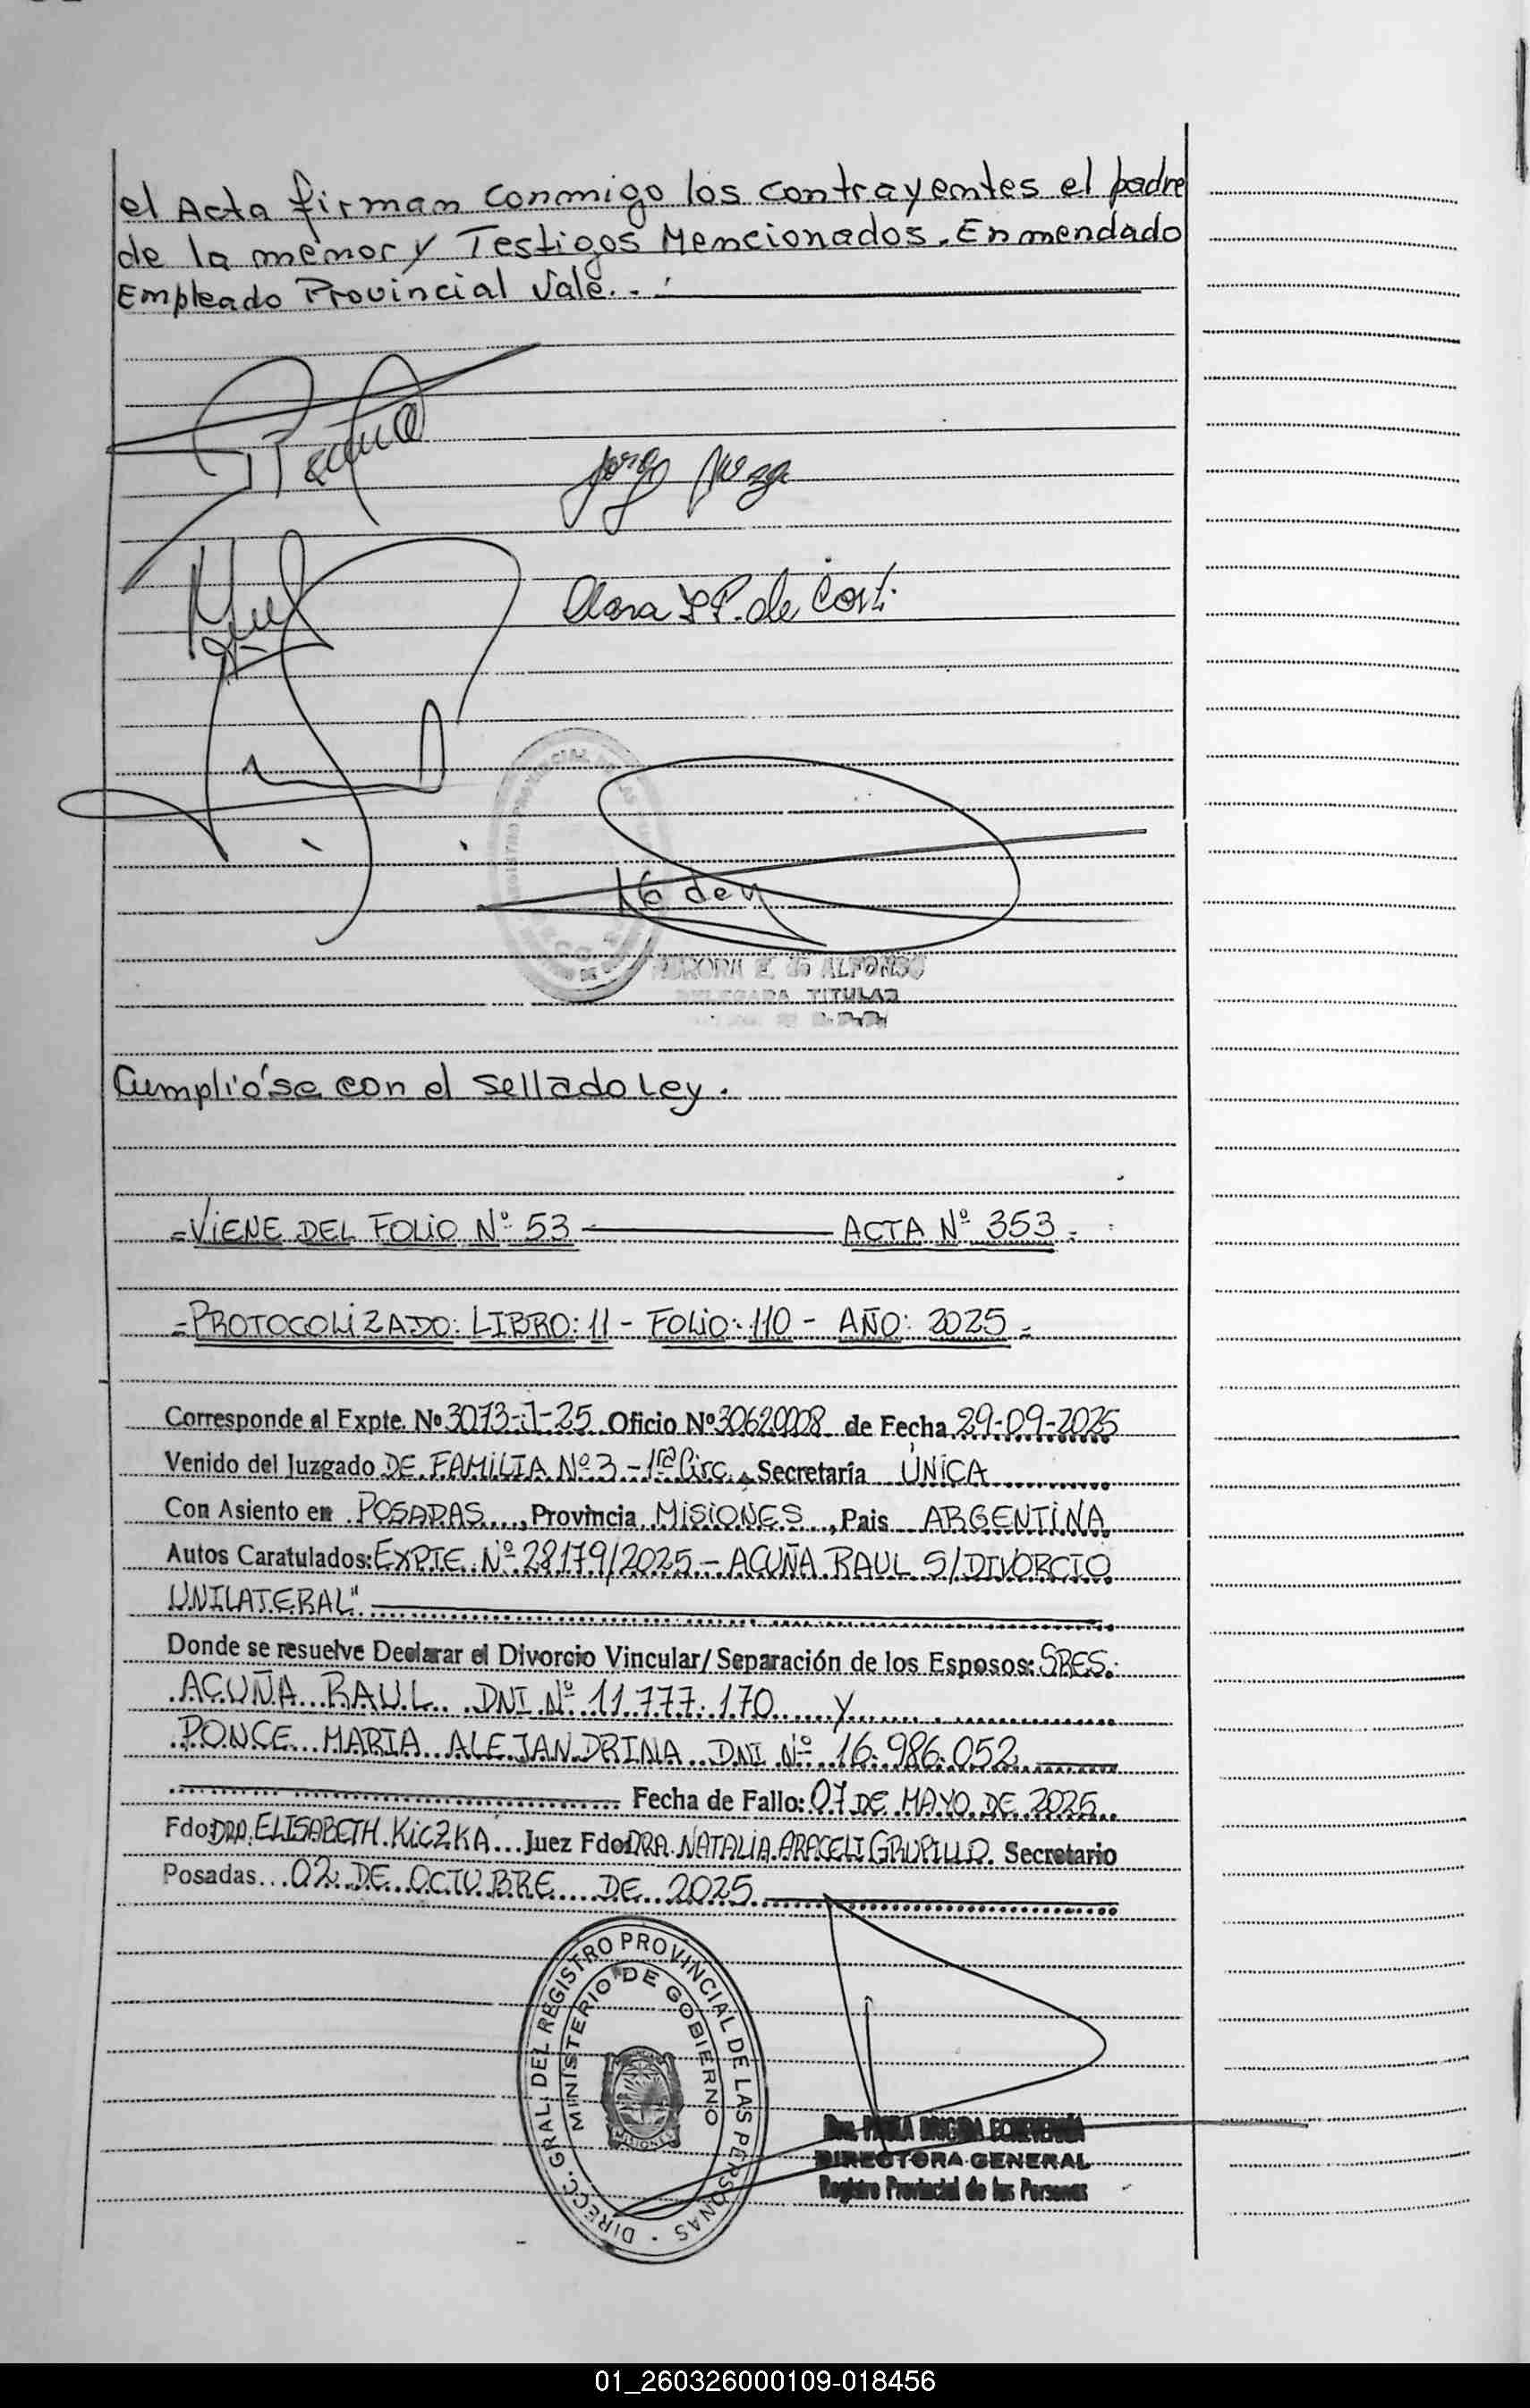 el Acta firman conmigo los contrayentes el padre
de la menor y Testigos Mencionados. Enmendado
Empleado Provincial Vale. .
Clara P. de Corti
AURORA E. de ALFONSO
DELEGADA TITULAR
Cumplióse con el sellado Ley.
=VIENE DEL FOLIO Nº 53 ACTA Nº 353=
=PROTOCOLIZADO: LIBRO: 11 - FOLIO: 110 - AÑO: 2025=
Corresponde al Expte. Nº 3073-J-25 Oficio Nº 30620008 de Fecha 29-09-2025
Venido del Juzgado DE FAMILIA Nº 3 - 1ra Circ., Secretaría ÚNICA
Con Asiento en POSADAS, Provincia MISIONES, Pais ARGENTINA
Autos Caratulados: EXPTE. Nº 28179/2025 - ACUÑA RAUL S/DIVORCIO
UNILATERAL"
Donde se resuelve Declarar el Divorcio Vincular/Separación de los Esposos: SRES.
ACUÑA RAUL DNI Nº 11.777.170 y
PONCE MARIA ALEJANDRINA DNI Nº 16.986.052
Fecha de Fallo: 07 DE MAYO DE 2025
Fdo DRA. ELISABETH KICZKA Juez Fdo DRA. NATALIA ARACELI GRUPILLO. Secretario
Posadas 02 DE OCTUBRE DE 2025
DIRECC. GRAL. DEL REGISTRO PROVINCIAL DE LAS PERSONAS
MINISTERIO DE GOBIERNO
MISIONES
Dra. PAULA BRIGIDA ECHEVERRÍA
DIRECTORA GENERAL
Registro Provincial de las Personas
01_260326000109-018456